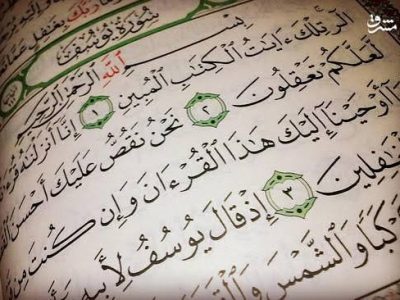 رَبُّكَ بِغَٰفِلٍ عَمَّا
سُورَةُ يُوسُفَ
بِسْمِ ٱللَّهِ ٱلرَّحْمَٰنِ ٱلرَّحِيمِ
الٓر تِلْكَ ءَايَٰتُ ٱلْكِتَٰبِ ٱلْمُبِينِ ١ إِنَّآ أَنزَلْنَٰهُ
لَّعَلَّكُمْ تَعْقِلُونَ ٢ نَحْنُ نَقُصُّ عَلَيْكَ أَحْسَنَ
أَوْحَيْنَآ إِلَيْكَ هَٰذَا ٱلْقُرْءَانَ وَإِن كُنتَ مِن
غَٰفِلِينَ ٣ إِذْ قَالَ يُوسُفُ لِأَبِيهِ
كَبًا وَٱلشَّمْسَ وَٱلْقَمَرَ
مشرق